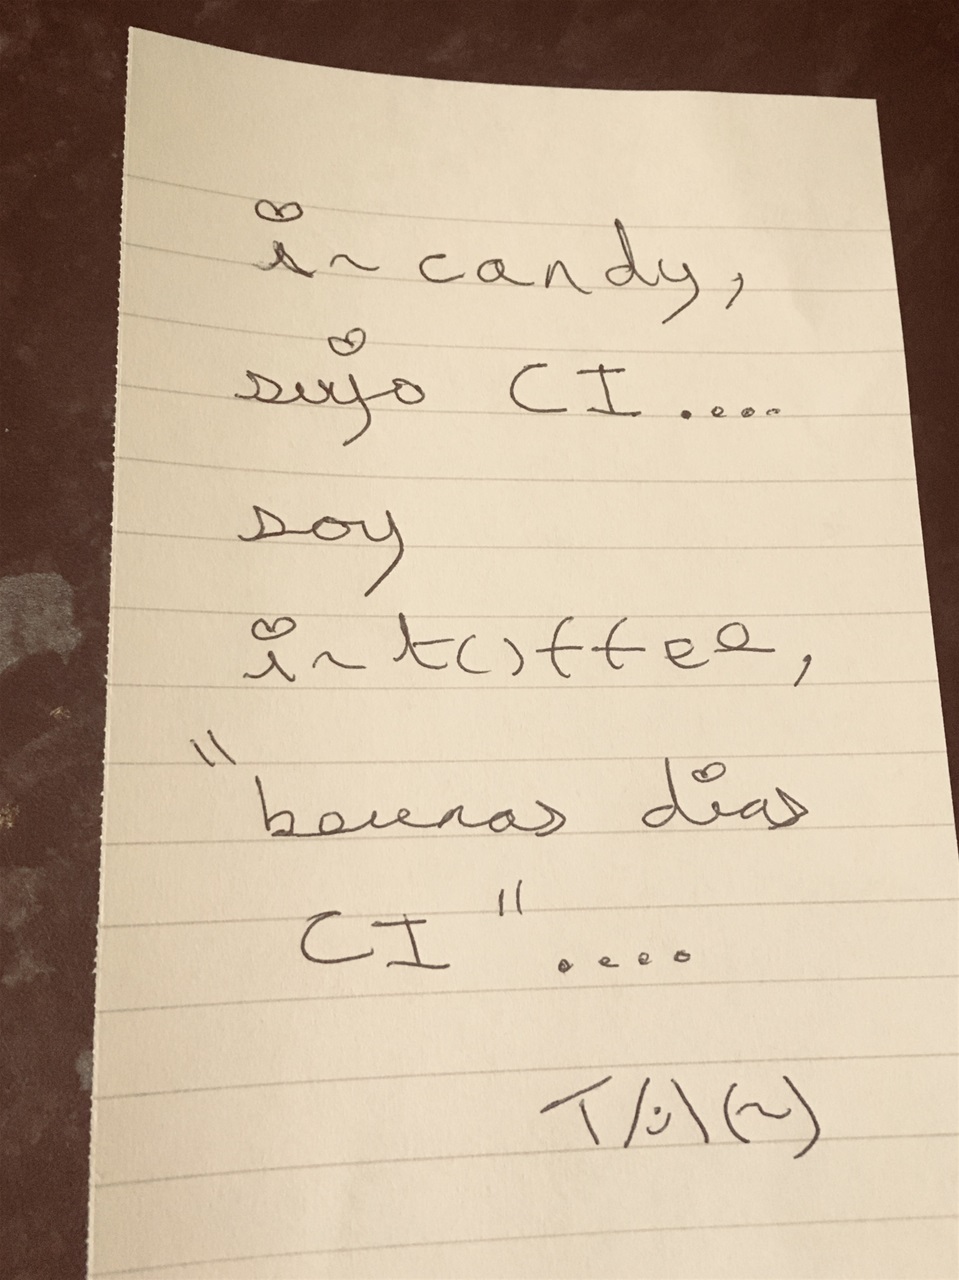 in candy,
sujo CI ....
soy
in t()ffee,
"bouenas dias
CI" ....